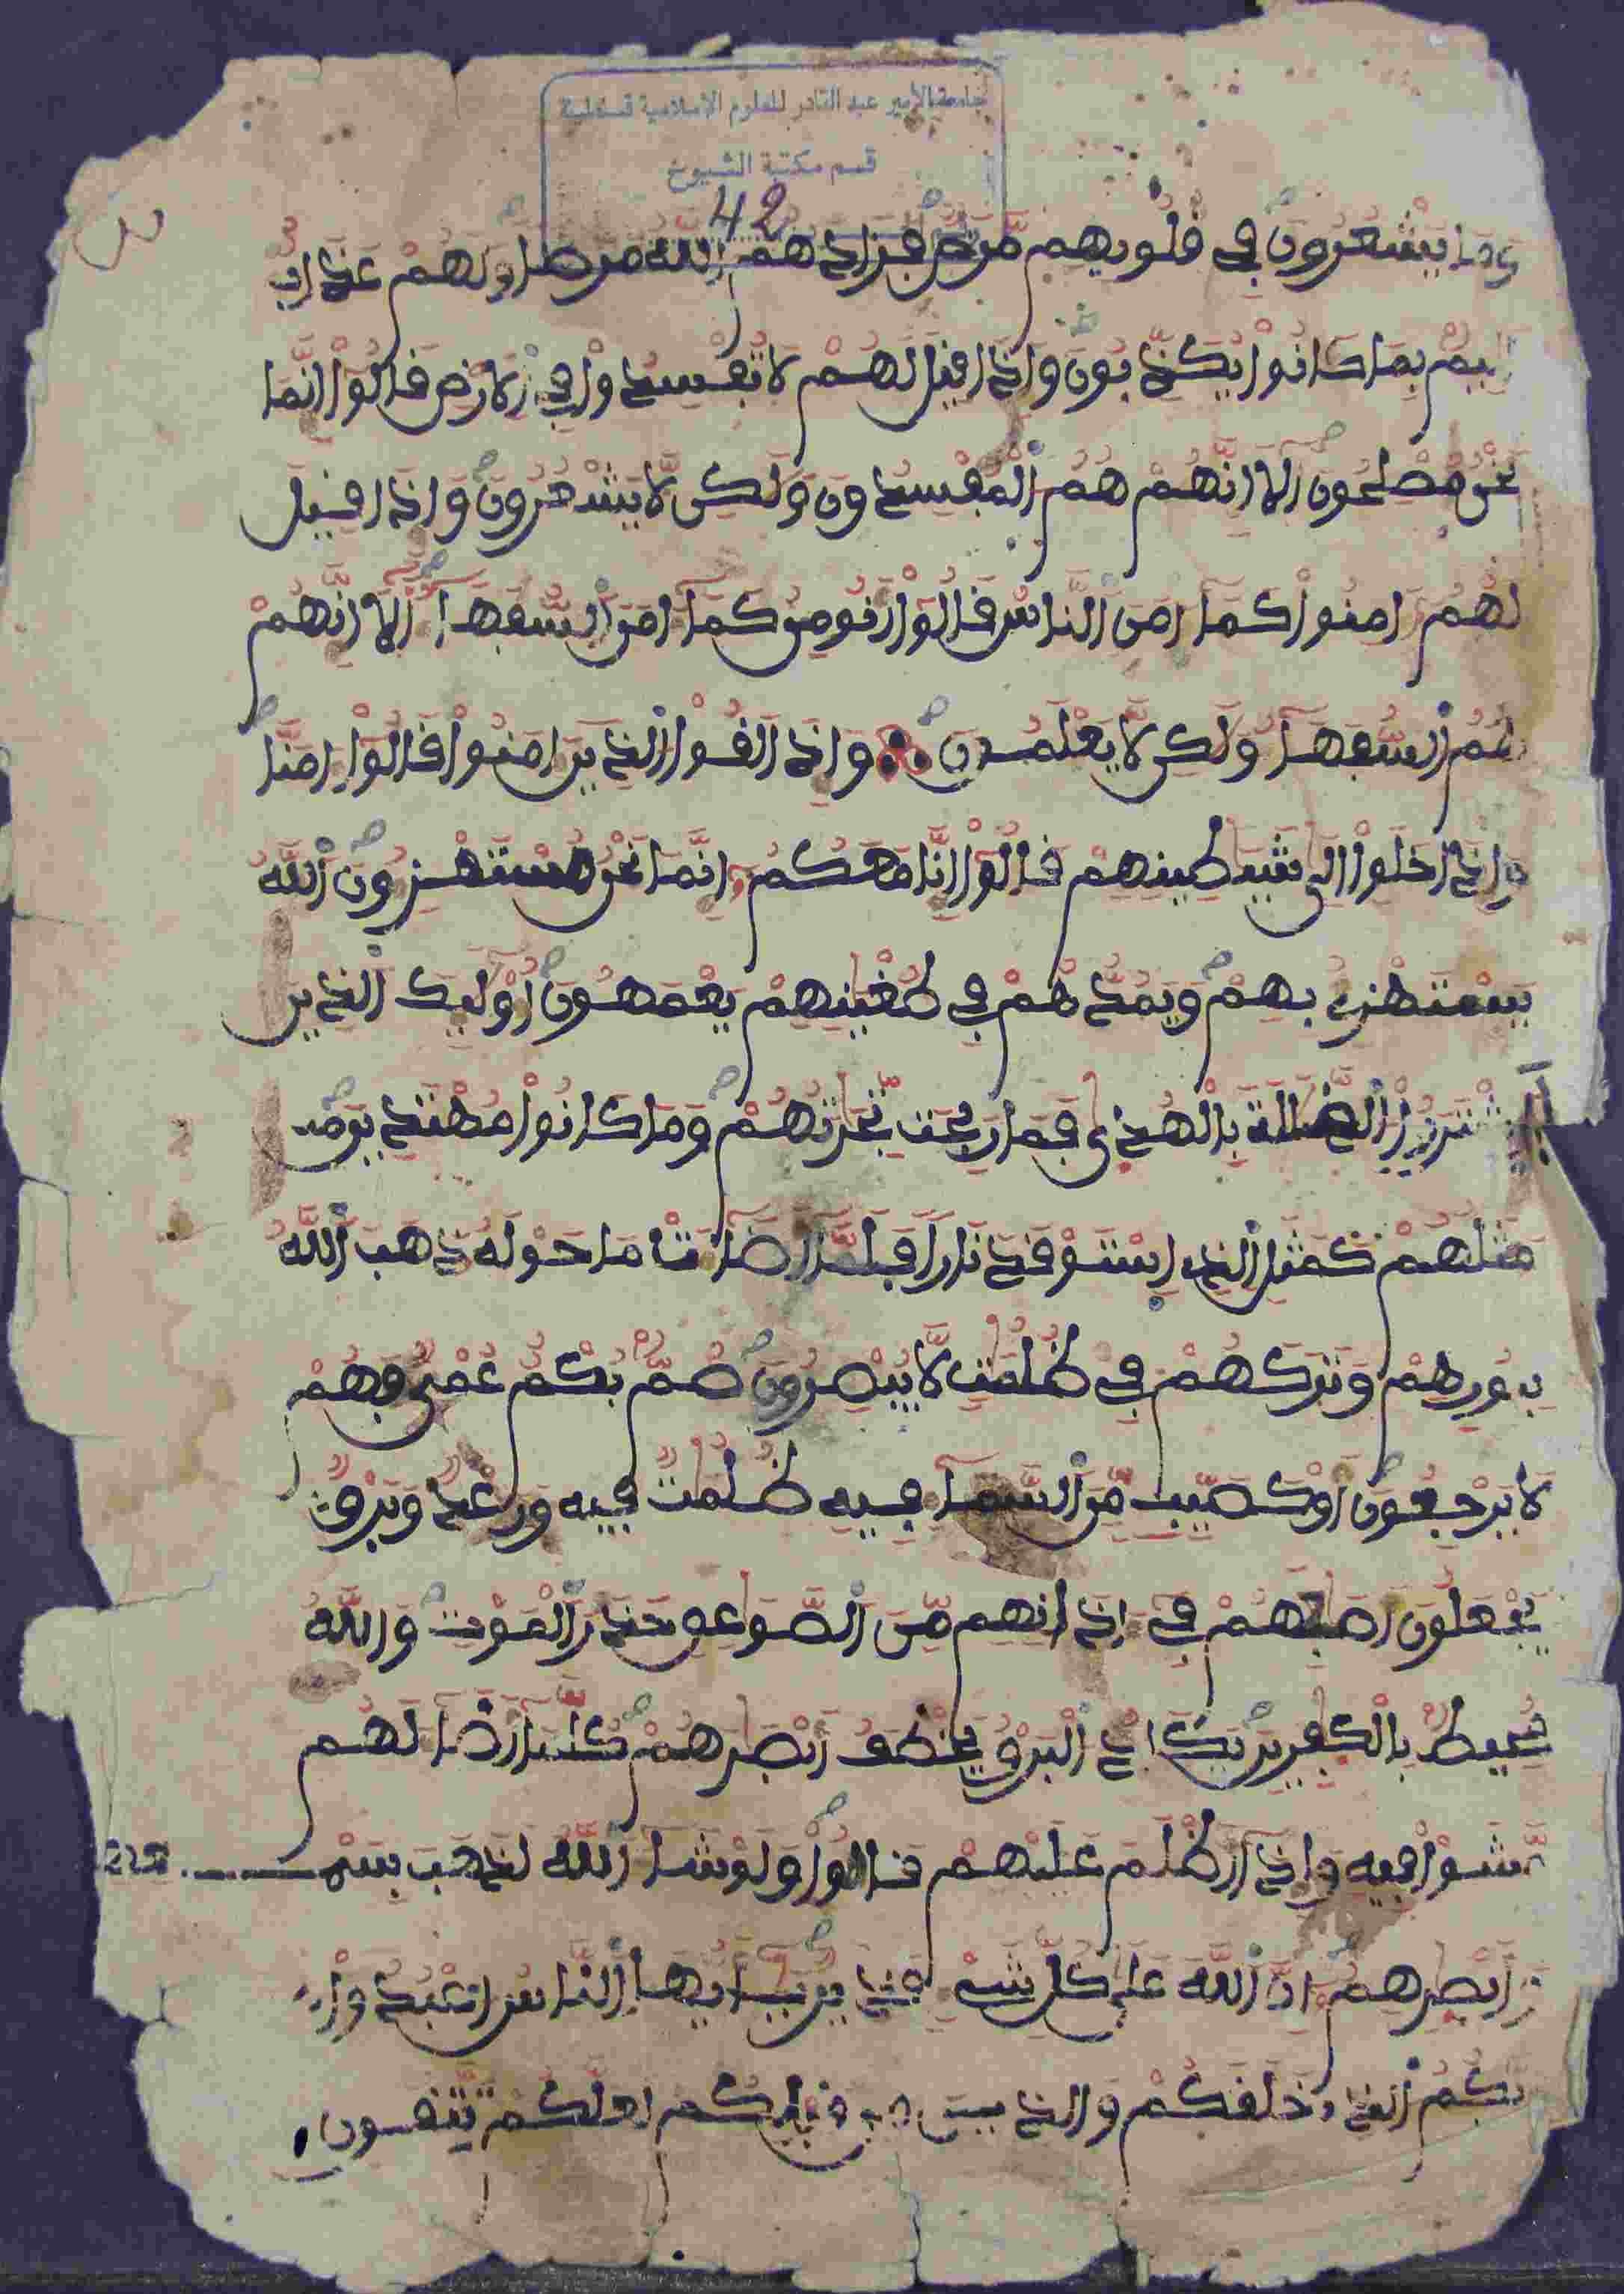 جامعة الأمير عبد القادر للعلوم الاسلامية قسنطينة
قسم مكتبة الشيوخ
42
وما يشعرون في قلوبهم مرض فزادهم الله مرضا ولهم عذاب
اليم بما كانوا يكذبون واذا قيل لهم لا تفسدوا في الارض قالوا انما
نحن مصلحون الا انهم هم المفسدون ولكن لا يشعرون واذا قيل
لهم امنوا كما امن الناس قالوا انومن كما امن السفها الا انهم
هم السفها ولكن لا يعلمون واذا لقوا الذين امنوا قالوا امنا
واذا خلوا الى شيطينهم قالوا انا معكم انما نحن مستهزون الله
يستهزئ بهم ويمدهم في طغينهم يعمهون اوليك الذين
اشتروا الضللة بالهدى فما ربحت تجرتهم وما كانوا مهتدين
مثلهم كمثل الذي استوقد نارا فلما اضات ما حوله ذهب الله
بنورهم وتركهم في ظلمت لا يبصرون صم بكم عمي فهم
لا يرجعون او كصيب من السما فيه ظلمت فيه ورعد وبرق
يجعلون اصبعهم في اذانهم من الصوعق حذر الموت والله
محيط بالكفرين يكاد البرق يخطف ابصرهم كلما اضا لهم
مشوا فيه واذا اظلم عليهم قاموا ولو شا الله لذهب بسم
وابصرهم ان الله على كل شي قدير يايها الناس اعبدوا
ربكم الذي خلقكم والذين من قبلكم لعلكم تتقون